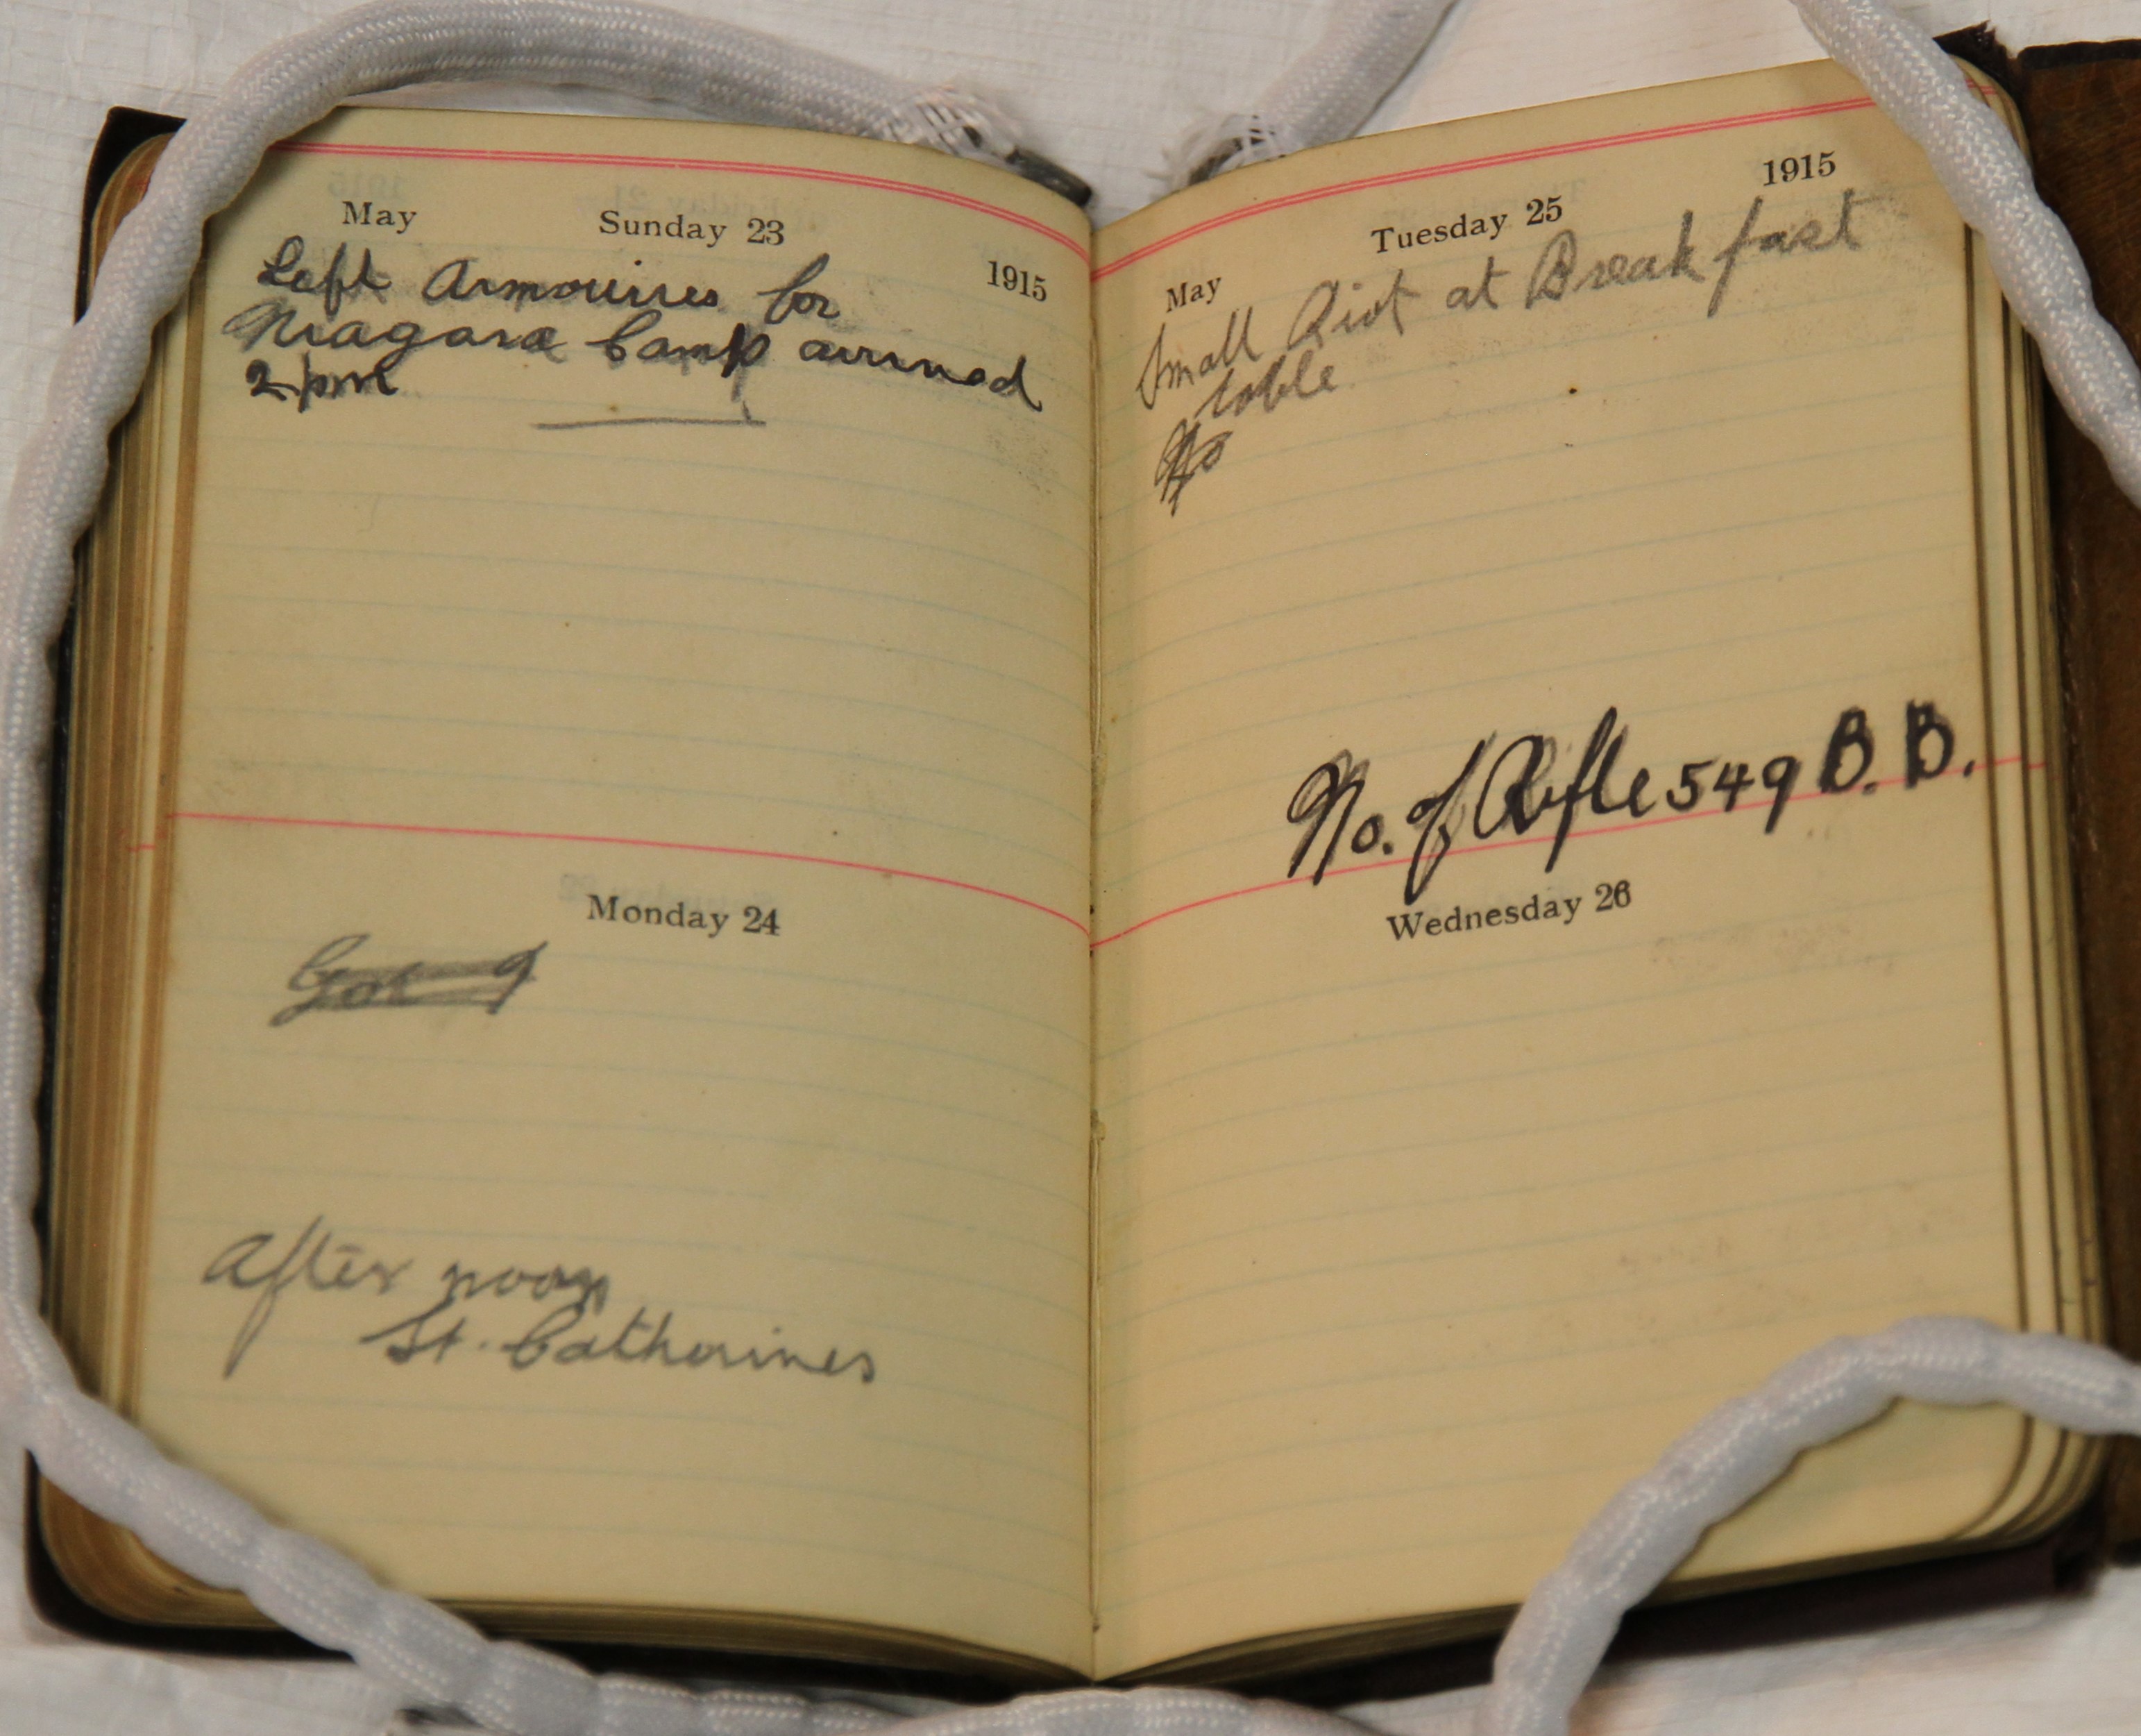 May Sunday 23 1915
Left Armouries for
Niagara Camp arrived
2 pm
Monday 24
After noon
St. Catherines
1915
May Tuesday 25
Small Riot at Breakfast
table
No
No. of Rifle 549 B. B.
Wednesday 26